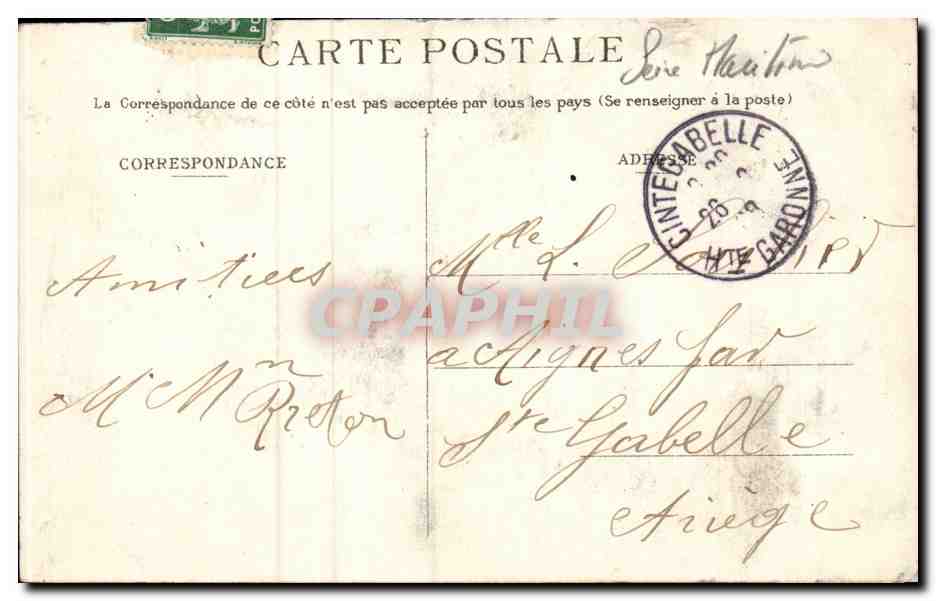 CARTE POSTALE
La Correspondance de ce côté n'est pas acceptée par tous les pays (Se renseigner à la poste)
CORRESPONDANCE
ADRESSE
CINTEGABELLE
HTE GARONNE
26
Amitiées
Mr Mme
Breton
Mlle L.
a Aignes par
Ste Gabelle
Ariège
CPAPHIL